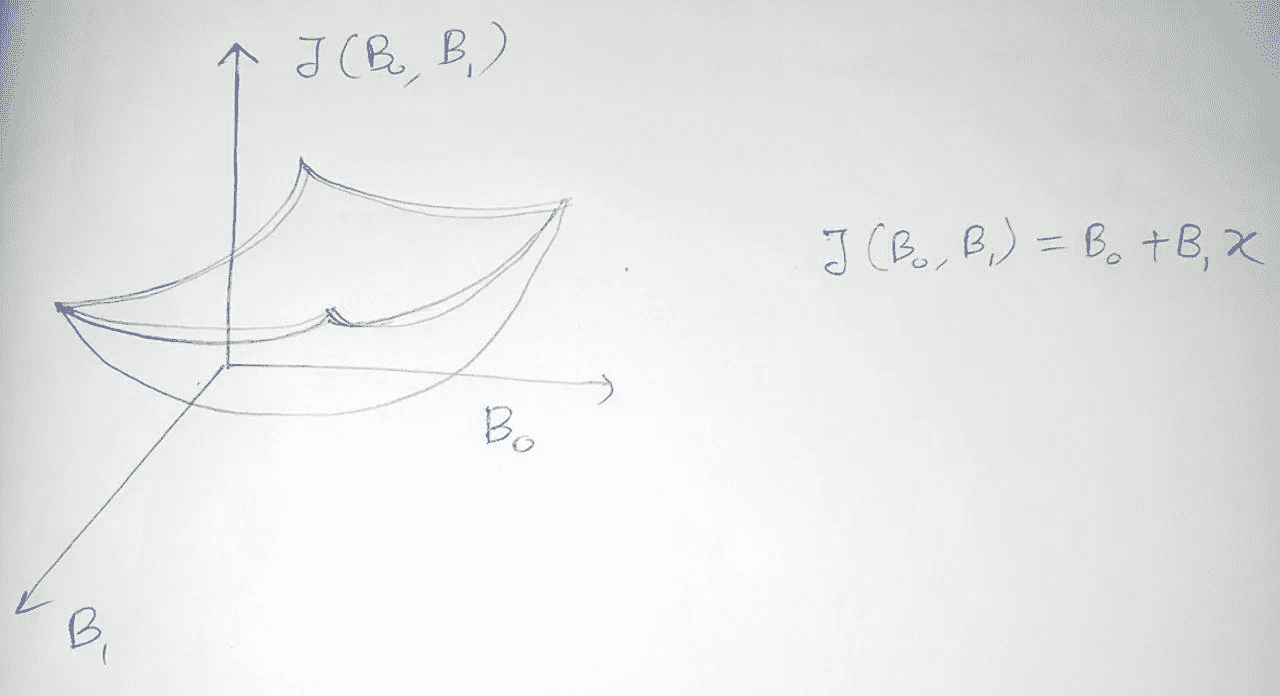 J(B₀, B₁)
J(B₀, B₁) = B₀ + B₁ x
B₀
B₁